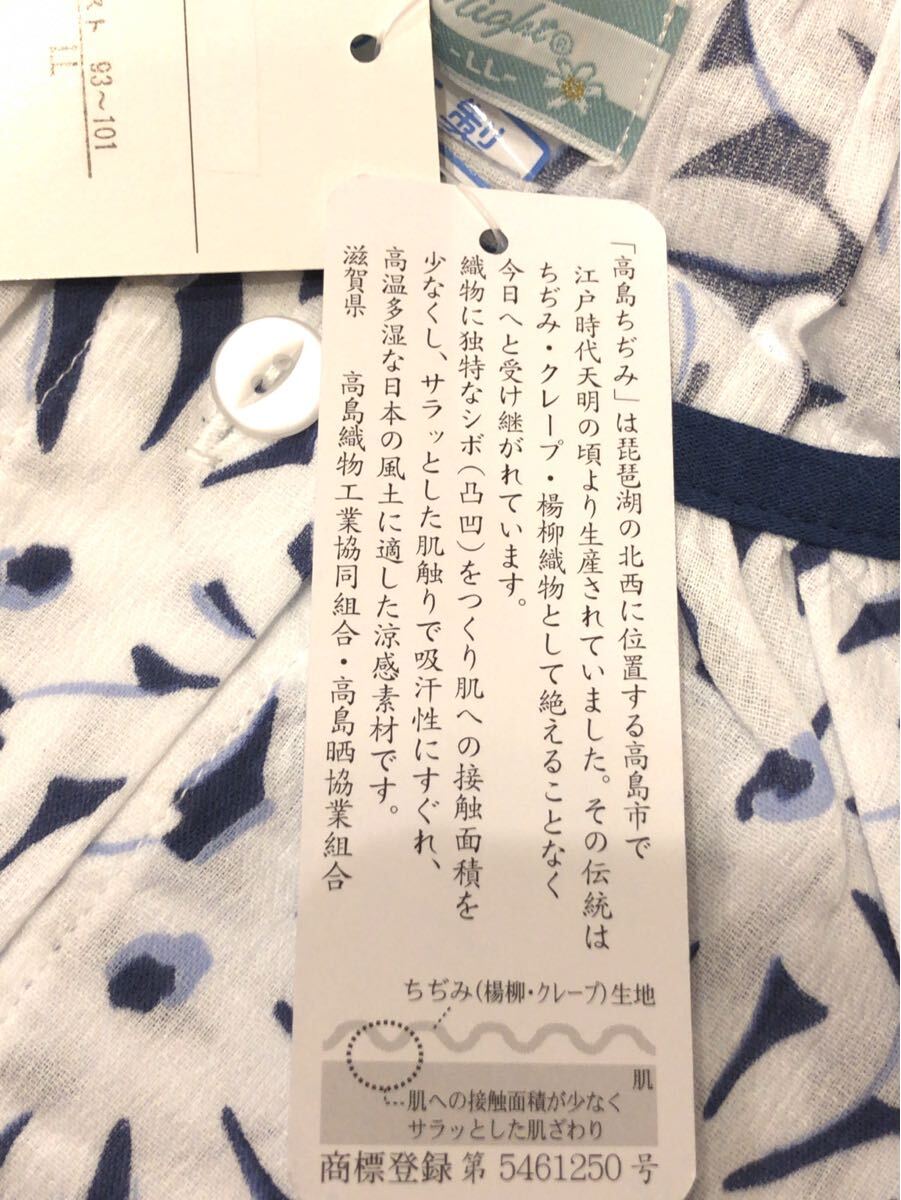 スト 93～101
LL
night®
-LL-
製
「高島ちぢみ」は琵琶湖の北西に位置する高島市で
江戸時代天明の頃より生産されていました。その伝統は
ちぢみ・クレープ・楊柳織物として絶えることなく
今日へと受け継がれています。
織物に独特なシボ(凸凹)をつくり肌への接触面積を
少なくし、サラッとした肌触りで吸汗性にすぐれ、
高温多湿な日本の風土に適した涼感素材です。
滋賀県　高島織物工業協同組合・高島晒協業組合
ちぢみ(楊柳・クレープ)生地
肌
肌への接触面積が少なく
サラッとした肌ざわり
商標登録 第 5461250 号